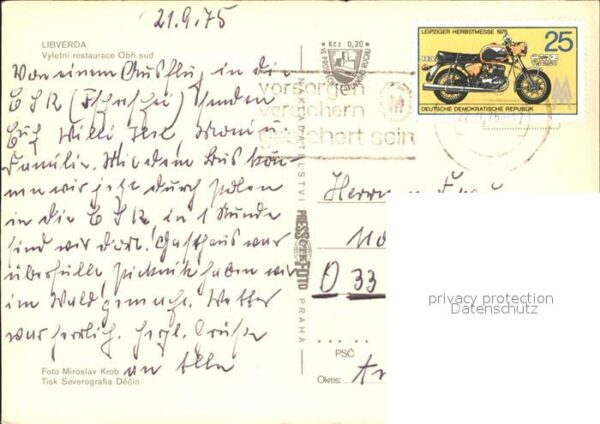 21.9.75
LIBVERDA
Výletní restaurace Obří sud
Von einem Ausflug in die
ČSR senden
Euch Willi
Familie. Mit dem Bus kön-
nen wir jetzt durch Polen
in die ČSR, in 1 Stunde
sind wir dort. Gasthaus war
überfüllt, Picknick haben wir
im Wald gemacht. Wetter
war herrlich. Herzl. Grüße
an Alle
Foto Miroslav Krob
Tisk Severografia Děčín
NAKLADATELSTVÍ PRESSFOTO PRAHA
Kčs 0,20
vorsorgen
versichern
gesichert sein
LEIPZIGER HERBSTMESSE 1975
25
DEUTSCHE DEMOKRATISCHE REPUBLIK
Herrn u. Frau
D 33
PSČ
Okres:
privacy protection
Datenschutz